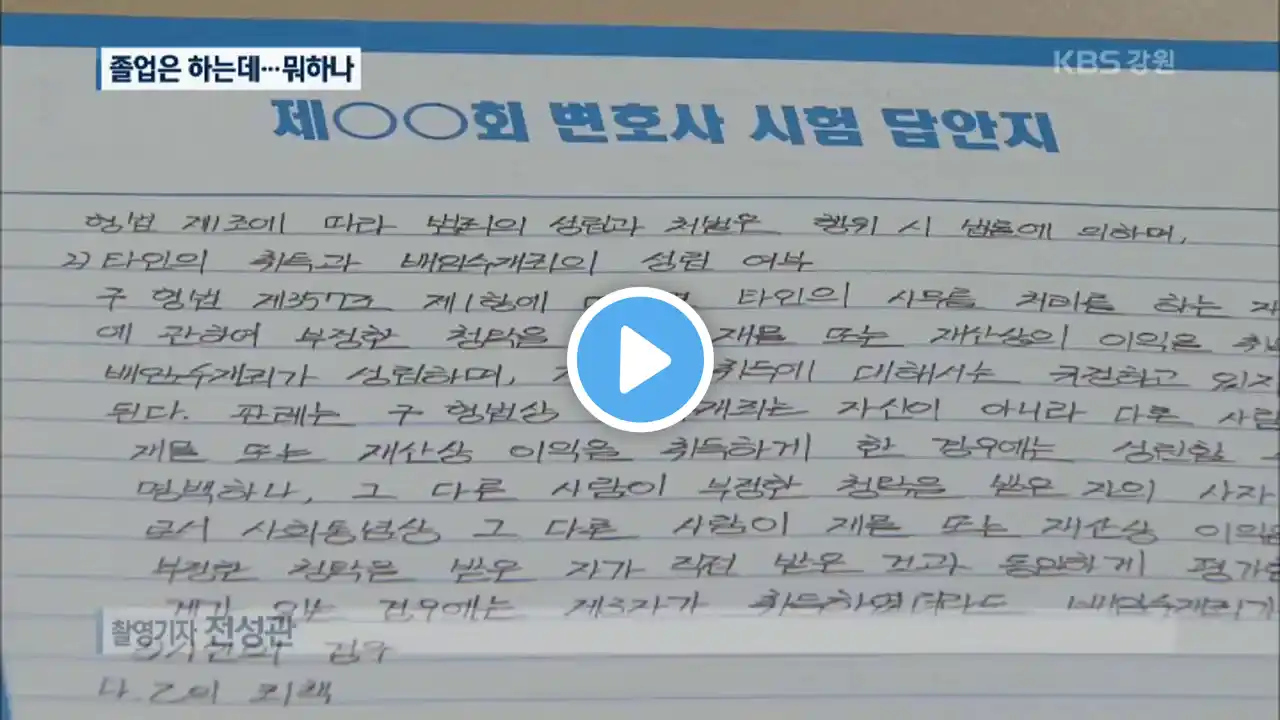 졸업은 하는데…뭐하나
KBS 강원
제○○회 변호사 시험 답안지
형법 제1조에 따라 범죄의 성립과 처벌은 행위 시 법률에 의하며,
2) 타인의 취득과 배임수재죄의 성립 여부
구 형법 제357조 제1항에 타인의 사무를 처리를 하는 자
에 관하여 부정한 청탁을 재물 또는 재산상의 이익을 취
배임수재죄가 성립하며, 취득에 대해서는 규정하고 있지
된다. 판례는 구 형법상 자신이 아니라 다른 사람
재물 또는 재산상 이익을 취득하게 한 경우에는 성립할
명백하나, 그 다른 사람이 부정한 청탁을 받은 자의 사자
로서 사회통념상 그 다른 사람이 재물 또는 재산상 이익을
부정한 청탁을 받은 자가 직접 받은 것과 동일하게 평가
있는 경우에는 제3자가 취득하였더라도 배임수재죄가
촬영기자 전성관
나. 乙의 죄책